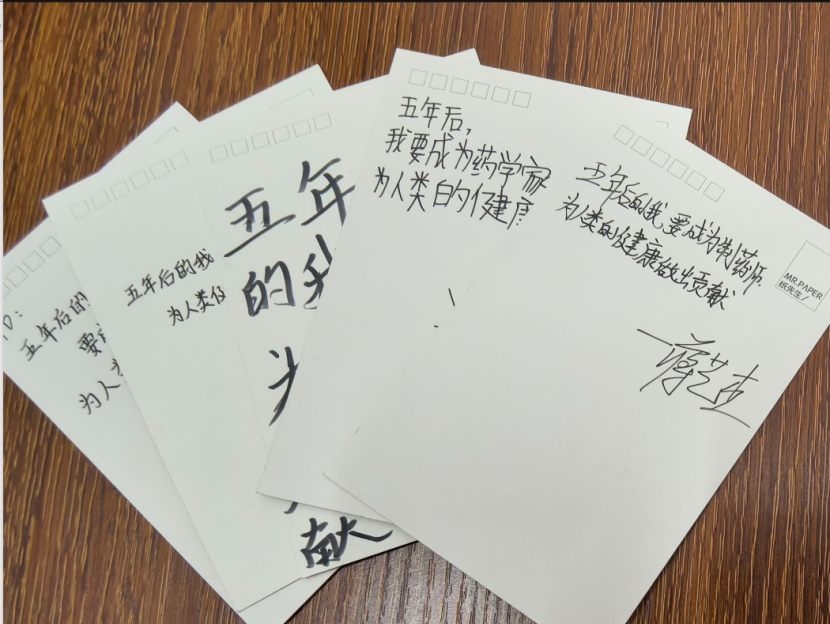 五年后的
要
为人
五年后的我
为人类
五年
的我
献
五年后，
我要成为药学家
为人类的健康
五年后的我，要成为制药师.
为人类的健康做出贡献
MR.PAPER
纸先生/